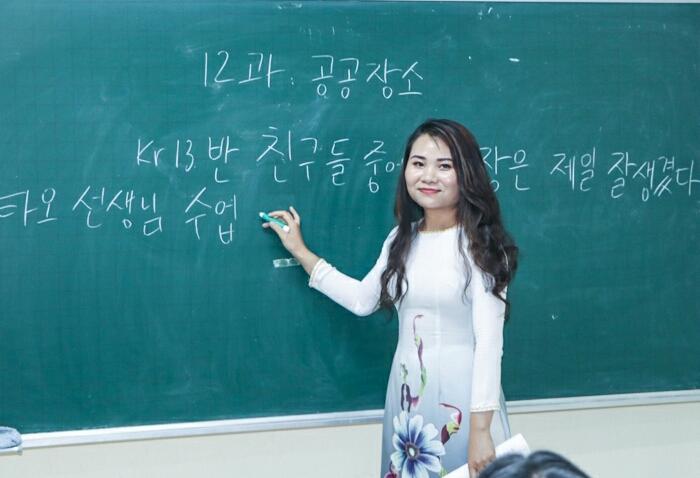 12과: 공공장소
Kr13 반 친구들 제일 잘생겼다
타오 선생님 수업